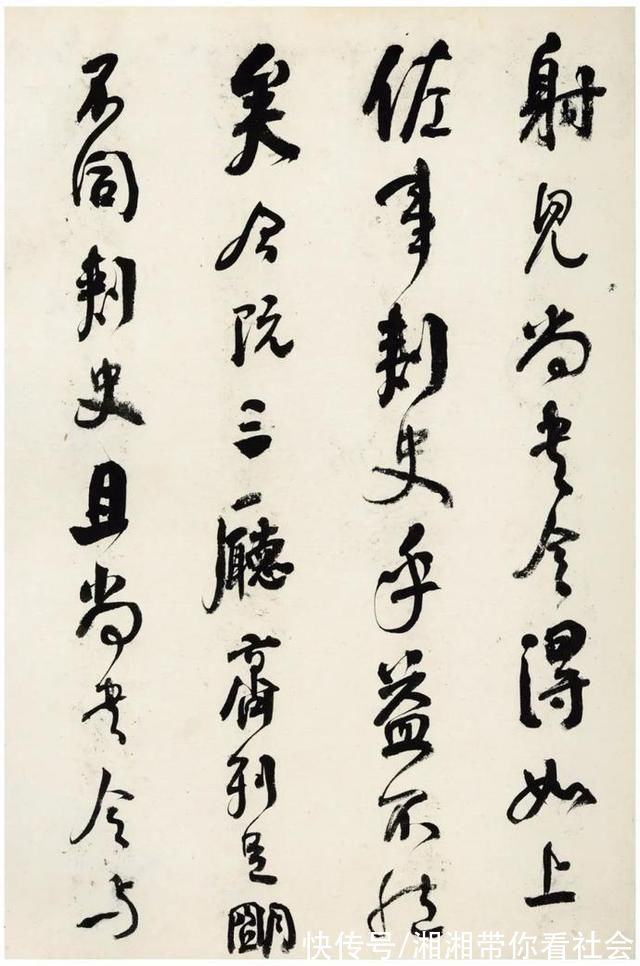 射見尚书令得如上
佐事刺史乎益不然
矣今既三廳齊列足明
不同刺史且尚书令与
快传号/湘湘带你看社会